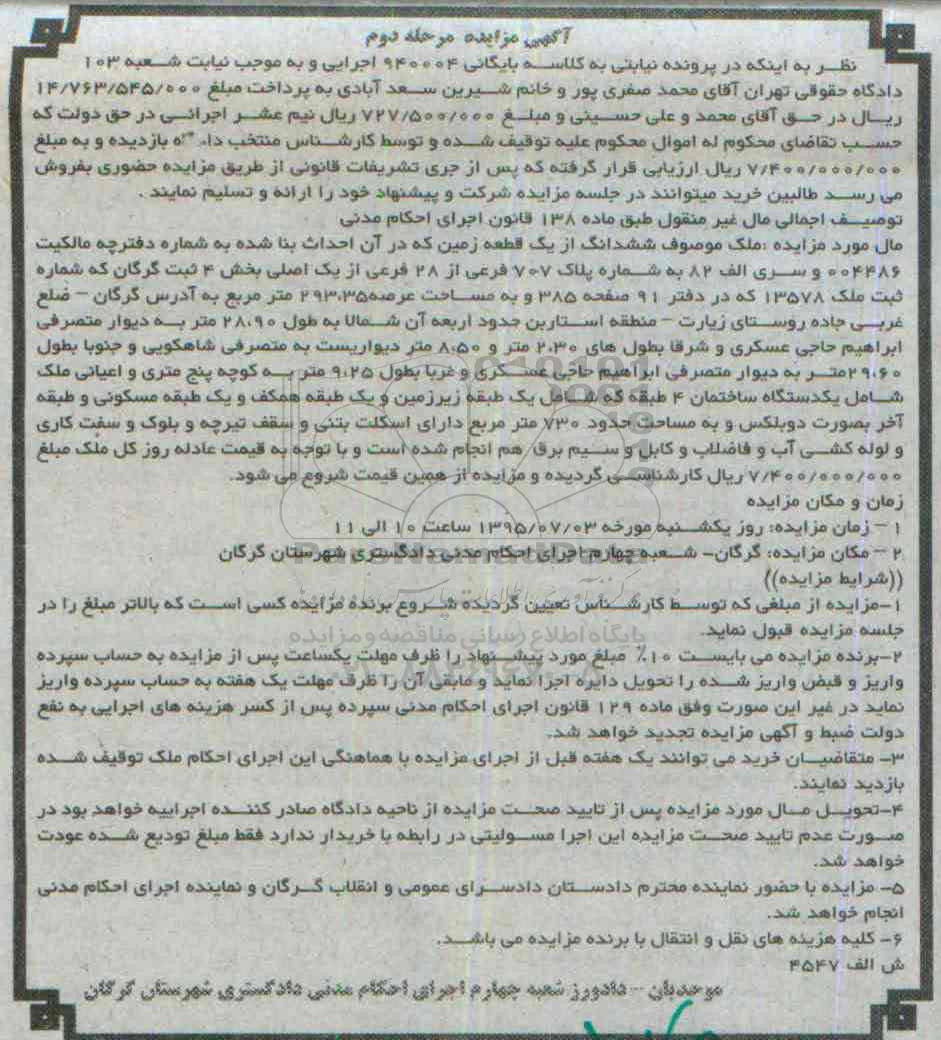 آگهی مزایده مرحله دوم
نظر به اینکه در پرونده نیابتی به کلاسه بایگانی ۹۴۰۰۰۴ اجرایی و به موجب نیابت شعبه ۱۰۳
دادگاه حقوقی تهران آقای محمد صفری پور و خانم شیرین سعد آبادی به پرداخت مبلغ ۱۴/۷۶۳/۵۴۵/۰۰۰
ریال در حق آقای محمد و علی حسینی و مبلغ ۷۲۷/۵۰۰/۰۰۰ ریال نیم عشر اجرائی در حق دولت که
حسب تقاضای محکوم له اموال محکوم علیه توقیف شده و توسط کارشناس منتخب بازدیده و به مبلغ
۷/۴۰۰/۰۰۰/۰۰۰ ریال ارزیابی قرار گرفته که پس از جری تشریفات قانونی از طریق مزایده حضوری بفروش
می رسد طالبین خرید میتوانند در جلسه مزایده شرکت و پیشنهاد خود را ارائه و تسلیم نمایند .
توصیف اجمالی مال غیر منقول طبق ماده ۱۳۸ قانون اجرای احکام مدنی
مال مورد مزایده :ملک موصوف ششدانگ از یک قطعه زمین که در آن احداث بنا شده به شماره دفترچه مالکیت
۰۰۴۴۸۶ و سری الف ۸۲ به شماره پلاک ۷۰۷ فرعی از ۲۸ فرعی از یک اصلی بخش ۴ ثبت گرگان که شماره
ثبت ملک ۱۳۵۷۸ که در دفتر ۹۱ صفحه ۳۸۵ و به مساحت عرصه۲۹۳،۳۵ متر مربع به آدرس گرگان – ضلع
غربی جاده روستای زیارت – منطقه استاربن حدود اربعه آن شمالا به طول ۲۸،۹۰ متر به دیوار متصرفی
ابراهیم حاجی عسکری و شرقا بطول های ۲،۳۰ متر و ۸،۵۰ متر دیواریست به متصرفی شاهکویی و جنوبا بطول
۲۹،۶۰متر به دیوار متصرفی ابراهیم حاجی عسکری و غربا بطول ۹،۲۵ متر به کوچه پنج متری و اعیانی ملک
شامل یکدستگاه ساختمان ۴ طبقه که شامل یک طبقه زیرزمین و یک طبقه همکف و یک طبقه مسکونی و طبقه
آخر بصورت دوبلکس و به مساحت حدود ۷۳۰ متر مربع دارای اسکلت بتنی و سقف تیرچه و بلوک و سفت کاری
و لوله کشی آب و فاضلاب و کابل و سیم برق هم انجام شده است و با توجه به قیمت عادله روز کل ملک مبلغ
۷/۴۰۰/۰۰۰/۰۰۰ ریال کارشناسی گردیده و مزایده از همین قیمت شروع می شود.
زمان و مکان مزایده
۱ – زمان مزایده: روز یکشنبه مورخه ۱۳۹۵/۰۷/۰۳ ساعت ۱۰ الی ۱۱
۲ – مکان مزایده: گرگان– شعبه چهارم اجرای احکام مدنی دادگستری شهرستان گرگان
((شرایط مزایده))
۱–مزایده از مبلغی که توسط کارشناس تعیین گردیده شروع برنده مزایده کسی است که بالاتر مبلغ را در
جلسه مزایده قبول نماید.
۲–برنده مزایده می بایست ۱۰٪ مبلغ مورد پیشنهاد را ظرف مهلت یکساعت پس از مزایده به حساب سپرده
واریز و قبض واریز شده را تحویل دایره اجرا نماید و مابقی آن را ظرف مهلت یک هفته به حساب سپرده واریز
نماید در غیر این صورت وفق ماده ۱۲۹ قانون اجرای احکام مدنی سپرده پس از کسر هزینه های اجرایی به نفع
دولت ضبط و آگهی مزایده تجدید خواهد شد.
۳– متقاضیان خرید می توانند یک هفته قبل از اجرای مزایده با هماهنگی این اجرای احکام ملک توقیف شده
بازدید نمایند.
۴–تحویل مال مورد مزایده پس از تایید صحت مزایده از ناحیه دادگاه صادر کننده اجراییه خواهد بود در
صورت عدم تایید صحت مزایده این اجرا مسولیتی در رابطه با خریدار ندارد فقط مبلغ تودیع شده عودت
خواهد شد.
۵– مزایده با حضور نماینده محترم دادستان دادسرای عمومی و انقلاب گرگان و نماینده اجرای احکام مدنی
انجام خواهد شد.
۶– کلیه هزینه های نقل و انتقال با برنده مزایده می باشد.
ش الف ۴۵۴۷
موحدیان – دادورز شعبه چهارم اجرای احکام مدنی دادگستری شهرستان گرگان
ParsNamadData
پایگاه اطلاع رسانی مناقصه و مزایده